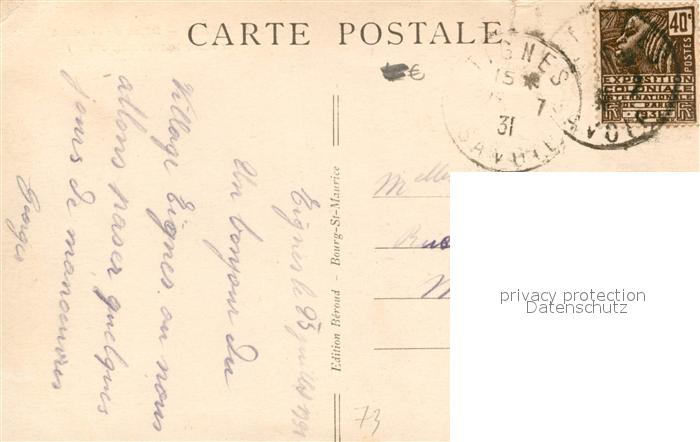 CARTE POSTALE
TIGNES
15 *
7
31
SAVOIE
40c
POSTES
EXPOSITION
COLONIALE
INTERNATIONALE
DE PARIS
1931
€
Tignes le 23 juillet 1931
Un bonjour du
village Tignes ou nous
allons passer quelques
jours de manœuvres
Georges
Edition Béroud - Bourg-St-Maurice
Melle
Rue
73
privacy protection
Datenschutz